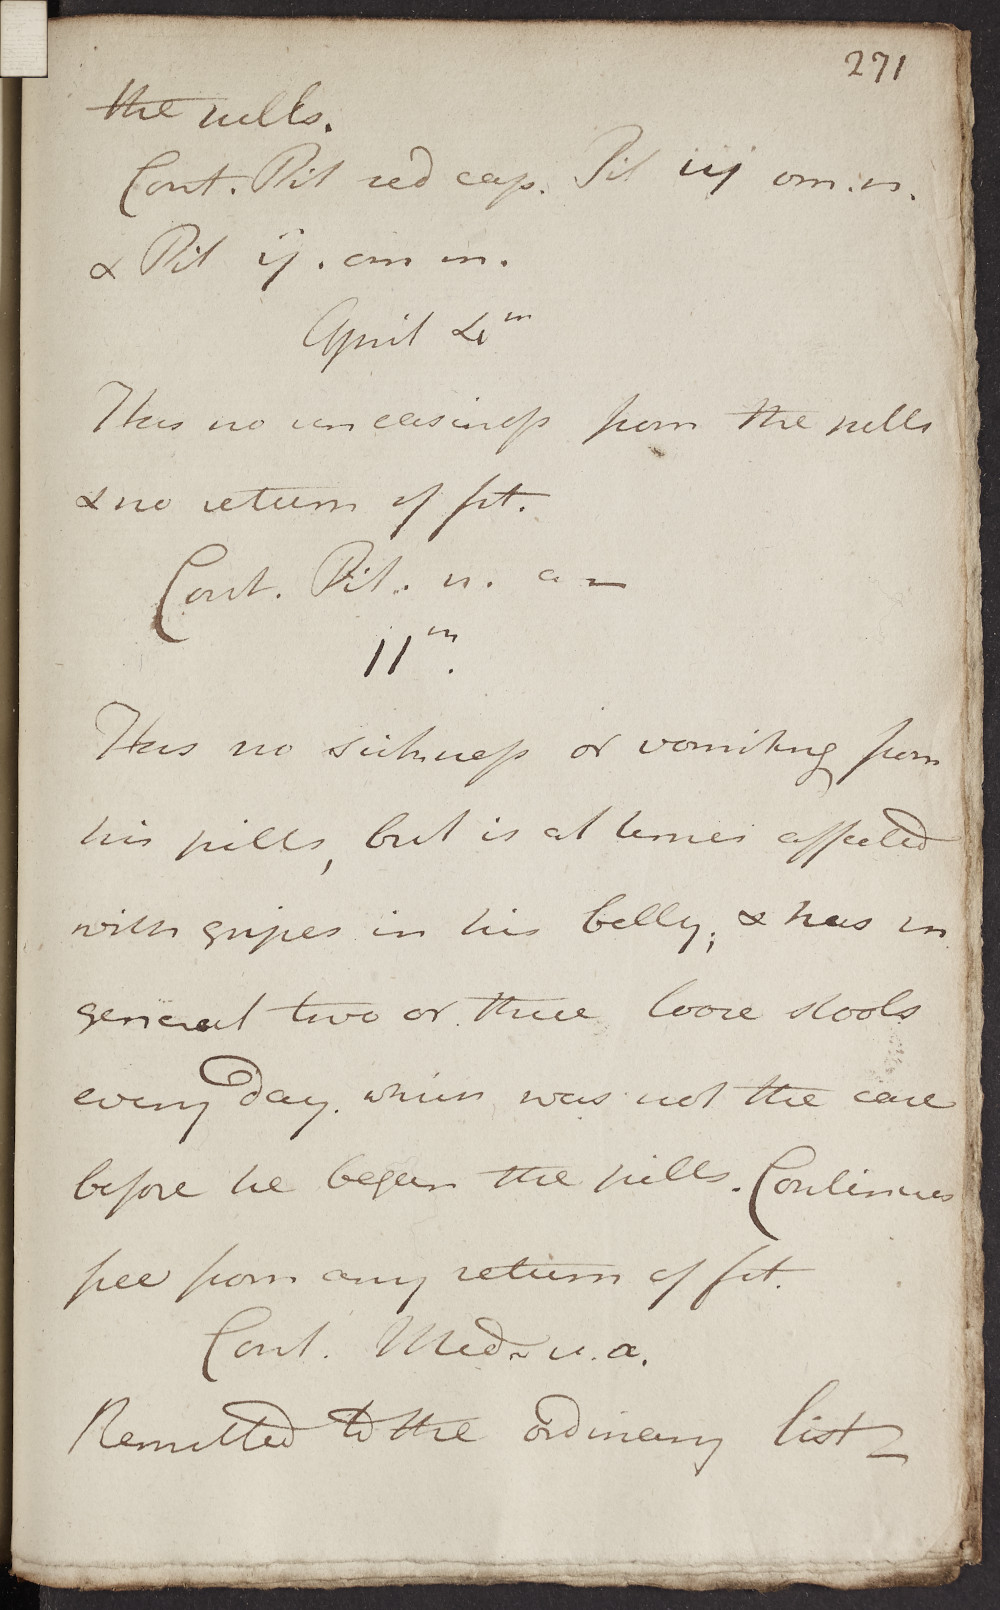 271
the pills.
Cont. Pil red cap. Pil iij om. n.
& Pil ij. om m.
April 4th
Has no uneasiness from the pills
& no return of fit.
Cont. Pil. u. a
11th.
Has no sickness or vomiting from
his pills, but is at times affected
with gripes in his belly; & has in
general two or three loose stools
every day. which was not the case
before he began the pills. Continues
free from any return of fit.
Cont. Med. u. a.
Remitted to the ordinary list